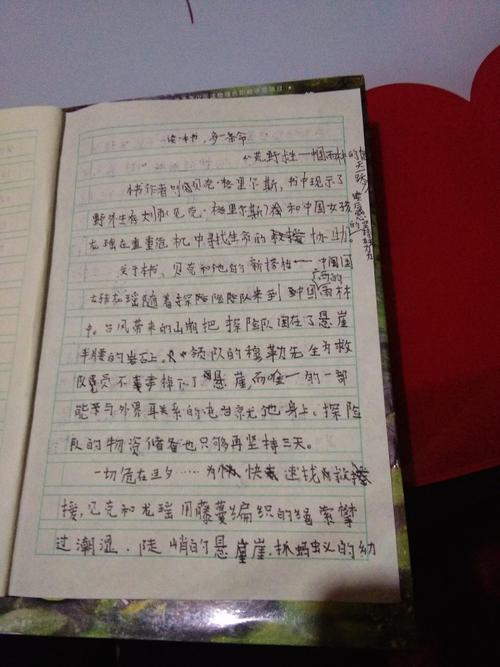 读本书,多一条命
《荒野求生—惊雨林的惊天一跃》读后感
本书作者贝尔·格里尔斯,书中现示了
野外生存贝克·格里尔斯)和中国女孩
龙瑶在重重危机中寻找生命的协助。
关于本书,贝克和他的新搭档——中国女
龙瑶随着探险队来到中国雨林
中。台风带来的山崩把探险队困在了悬崖
半腰的岩石上。领队的穆勒先生为救
队员不幸掉下了悬崖,而唯一的一部
能够与外界耳关系的电台就在他身上,探险
队的物资储备也只够再坚持三天。
一切危在旦夕……为快快速找救
援,贝克和龙瑶用藤蔓编织的绳索攀
过潮湿、陡峭的悬崖,抓蚂蚁的幼